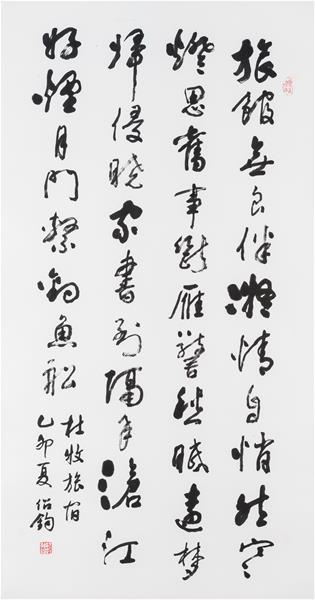 旅館無良伴凝情自悄然寒
燈思舊事斷雁警愁眠遠夢
歸侵曉家書到隔年滄江
好煙月門繫釣魚船
杜牧旅宿
乙卯夏 伯鈞